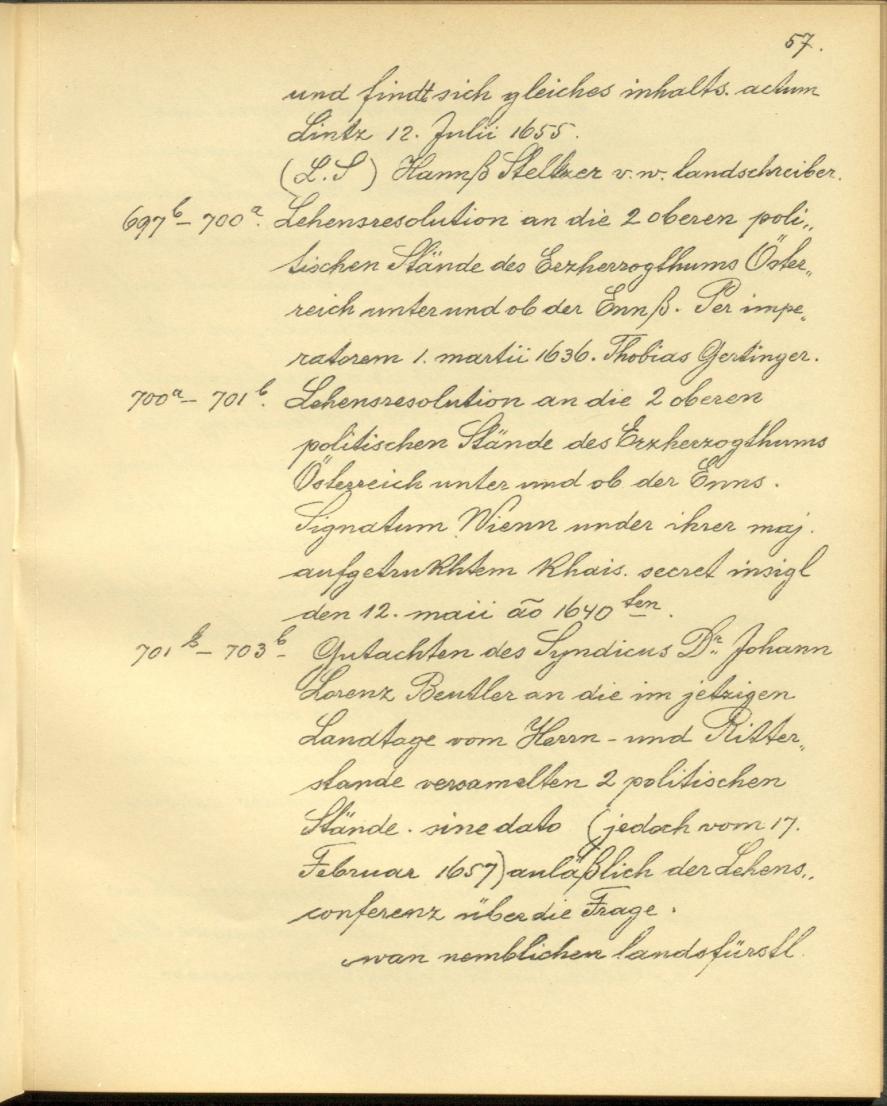 57.
und findt sich gleiches inhalts. actum
Lintz 12. Julii 1655.
(L.S) Hannß Steltzer v.w. landschreiber.
697b – 700a. Lehensresolution an die 2 oberen poli„
tischen Stände des Erzherzogthums Öster„
reich unter und ob der Ennß. Per impe„
ratorem 1. martii 1636. Thobias Gertinger.
700a – 701b. Lehensresolution an die 2 oberen
politischen Stände des Erzherzogthums
Österreich unter und ob der Enns.
Signatum Wienn under ihrer maj.
aufgetrukhtem khais. secret insigl
den 12. maii ão 1640ten.
701b – 703b – Gutachten des Syndicus Dr. Johann
Lorenz Beutler an die im jetzigen
Landtage vom Herrn- und Ritter„
stande versamelten 2 politischen
Stände. sine dato (jedoch vom 17.
Februar 1657) anläßlich der Lehens„
conferenz über die Frage.
wan nemblichen landsfürstl.